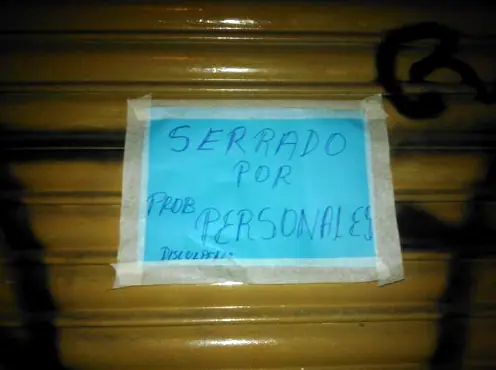 SERRADO
POR
PROB PERSONALES
DISCULPEN